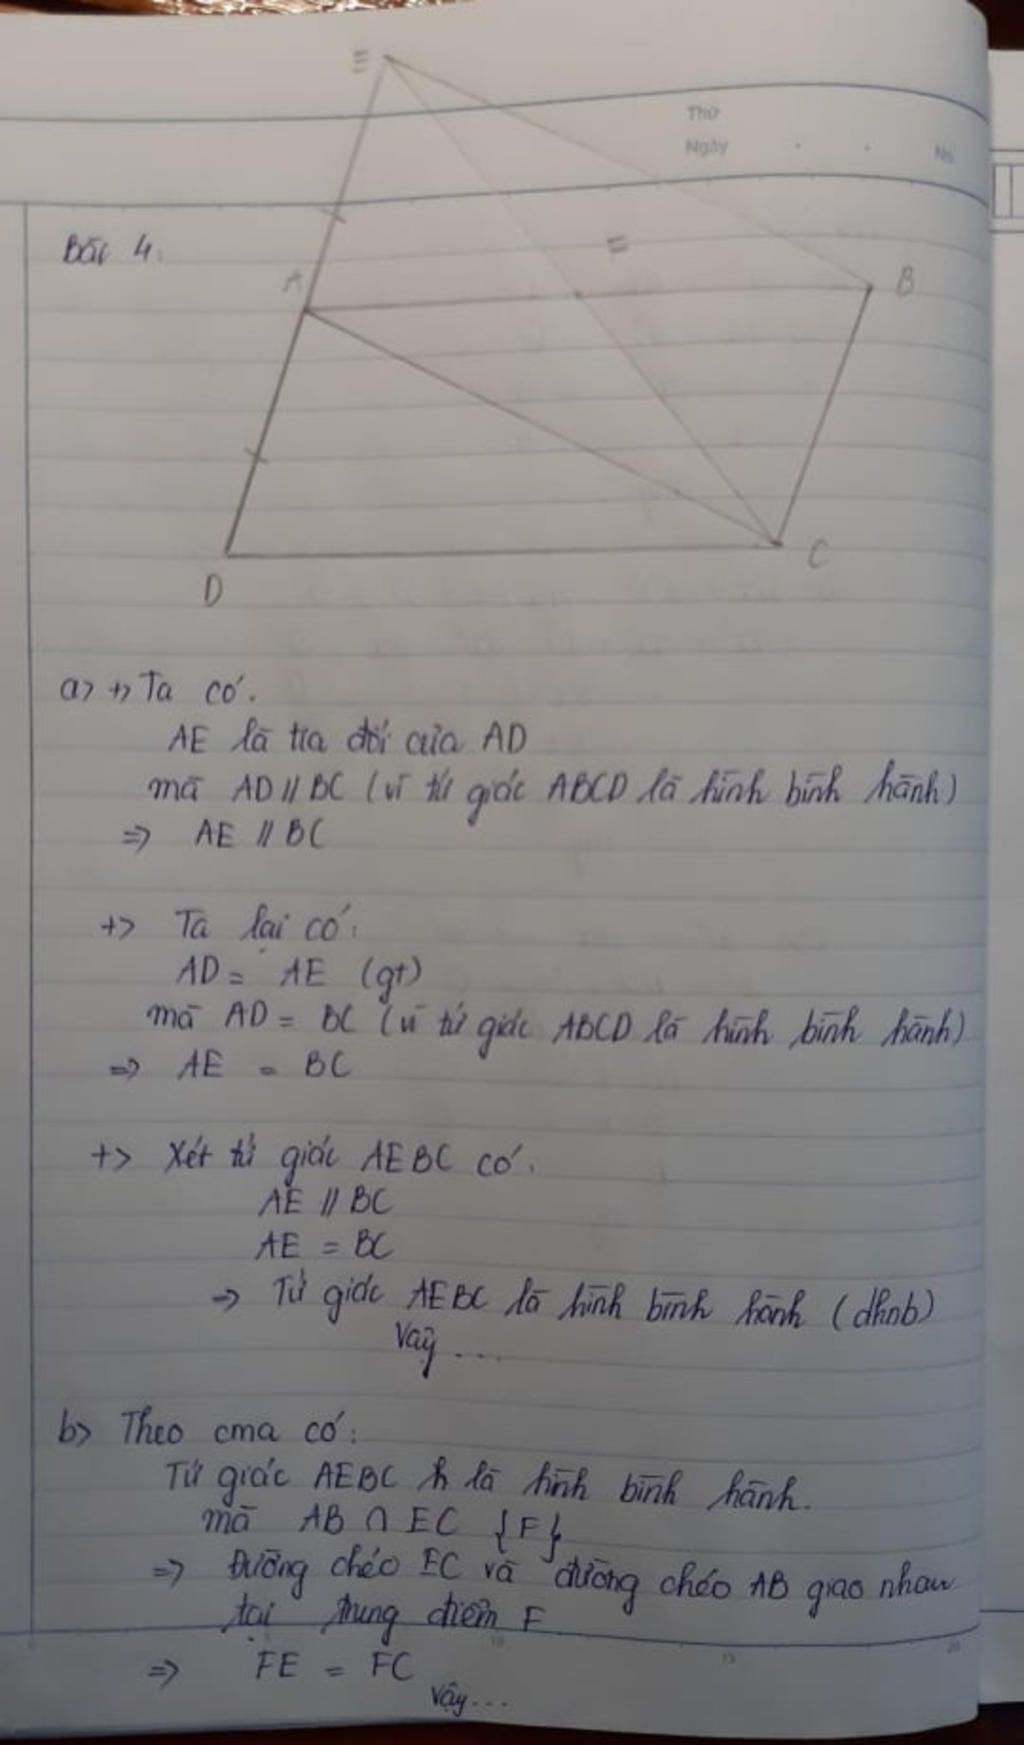 E
Thứ
Ngày
No
Bài 4:
A
E
B
D
C
a> +> Ta có:
AE là tia đối của AD
mà AD // BC (vì tứ giác ABCD là hình bình hành)
=> AE // BC
+> Ta lại có:
AD = AE (gt)
mà AD = BC (vì tứ giác ABCD là hình bình hành)
=> AE = BC
+> Xét tứ giác AEBC có:
AE // BC
AE = BC
=> Tứ giác AEBC là hình bình hành (dhnb)
Vậy ...
b> Theo cma có:
Tứ giác AEBC h là hình bình hành.
mà AB ∩ EC {F}
=> Đường chéo EC và đường chéo AB giao nhau
tại trung điểm F
=> FE = FC
Vậy...
10
15
20